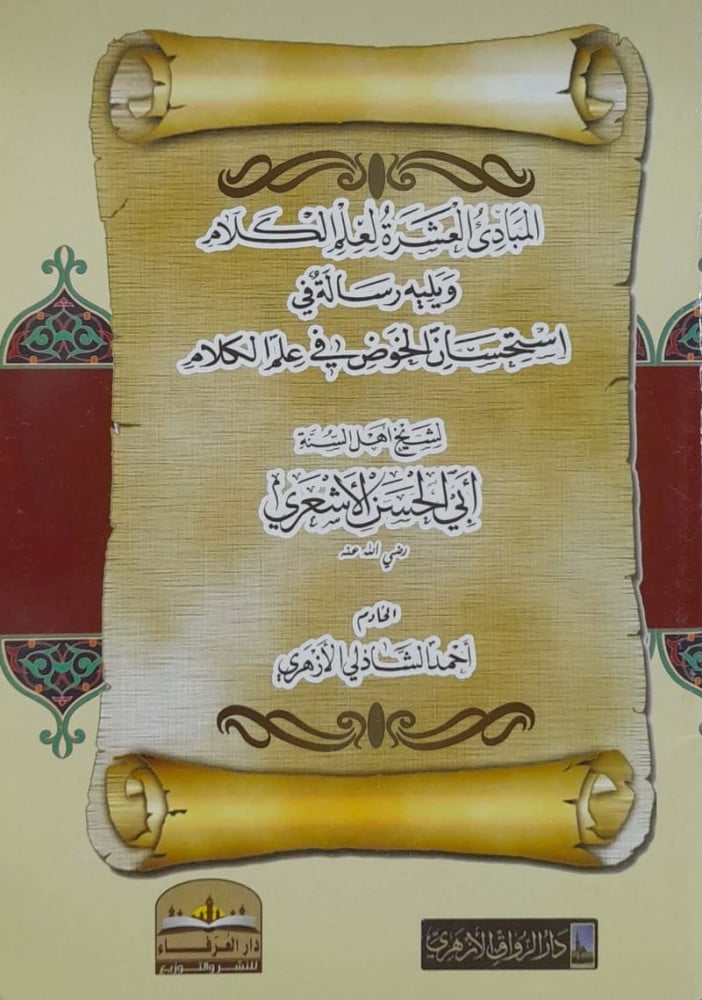 المبادئ العشرة لعلم الكلام
ويليه رسالة في
استحسان الخوض في علم الكلام
لشيخ أهل السنة
أبي الحسن الأشعري
رضي الله عنه
الخادم
أحمد الشاذلي الأزهري
دار الرواق الأزهري
دار العرفاء
للنشر والتوزيع